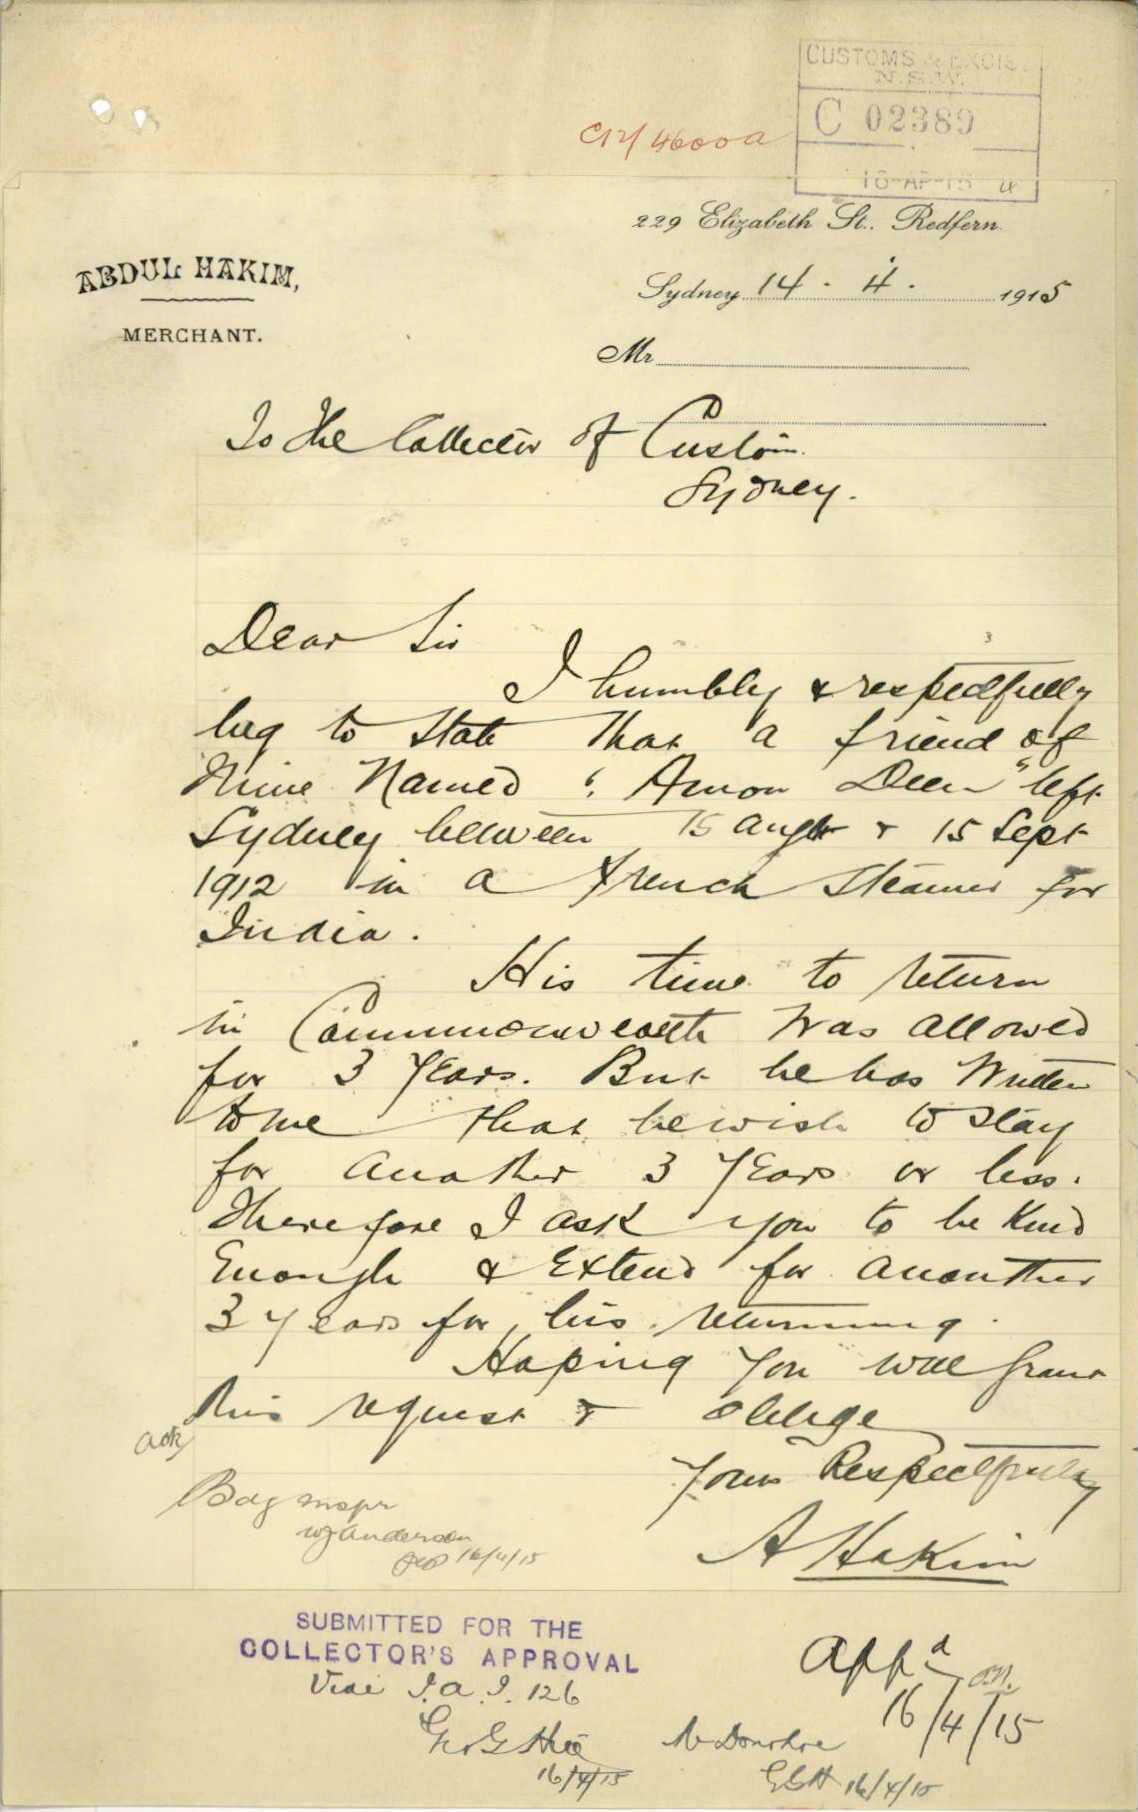 CUSTOMS & EXCISE
N.S.W.
C 02389
16-AP-15
C12/4600a
229 Elizabeth St. Redfern.
ABDUL HAKIM,
MERCHANT.
Sydney 14 . 4 . 1915
Mr
To The Collector of Custom.
Sydney.
Dear Sir
I humbly & respectfully
beg to State that a friend of
Mine Named "Amon Deen" left
Sydney between 15 Augt & 15 Sept
1912 in a french Steamer for
India.
His time to return
in Commonwealth was allowed
for 3 Years. But he has Written
to me that he wish to stay
for another 3 Years or less.
Therefore I ask you to be Kind
Enough & Extend for anounther
3 years for his returning.
Hoping you will grant
this request & oblige
Yours Respectfully
A Hakim
Ack
Bdg Inspr
WJ Anderson
16/4/15
SUBMITTED FOR THE
COLLECTOR'S APPROVAL
Vide I.A.I. 126
16/4/15
Appd
16/4/15
Mr Donohoe
GGH 16/4/15